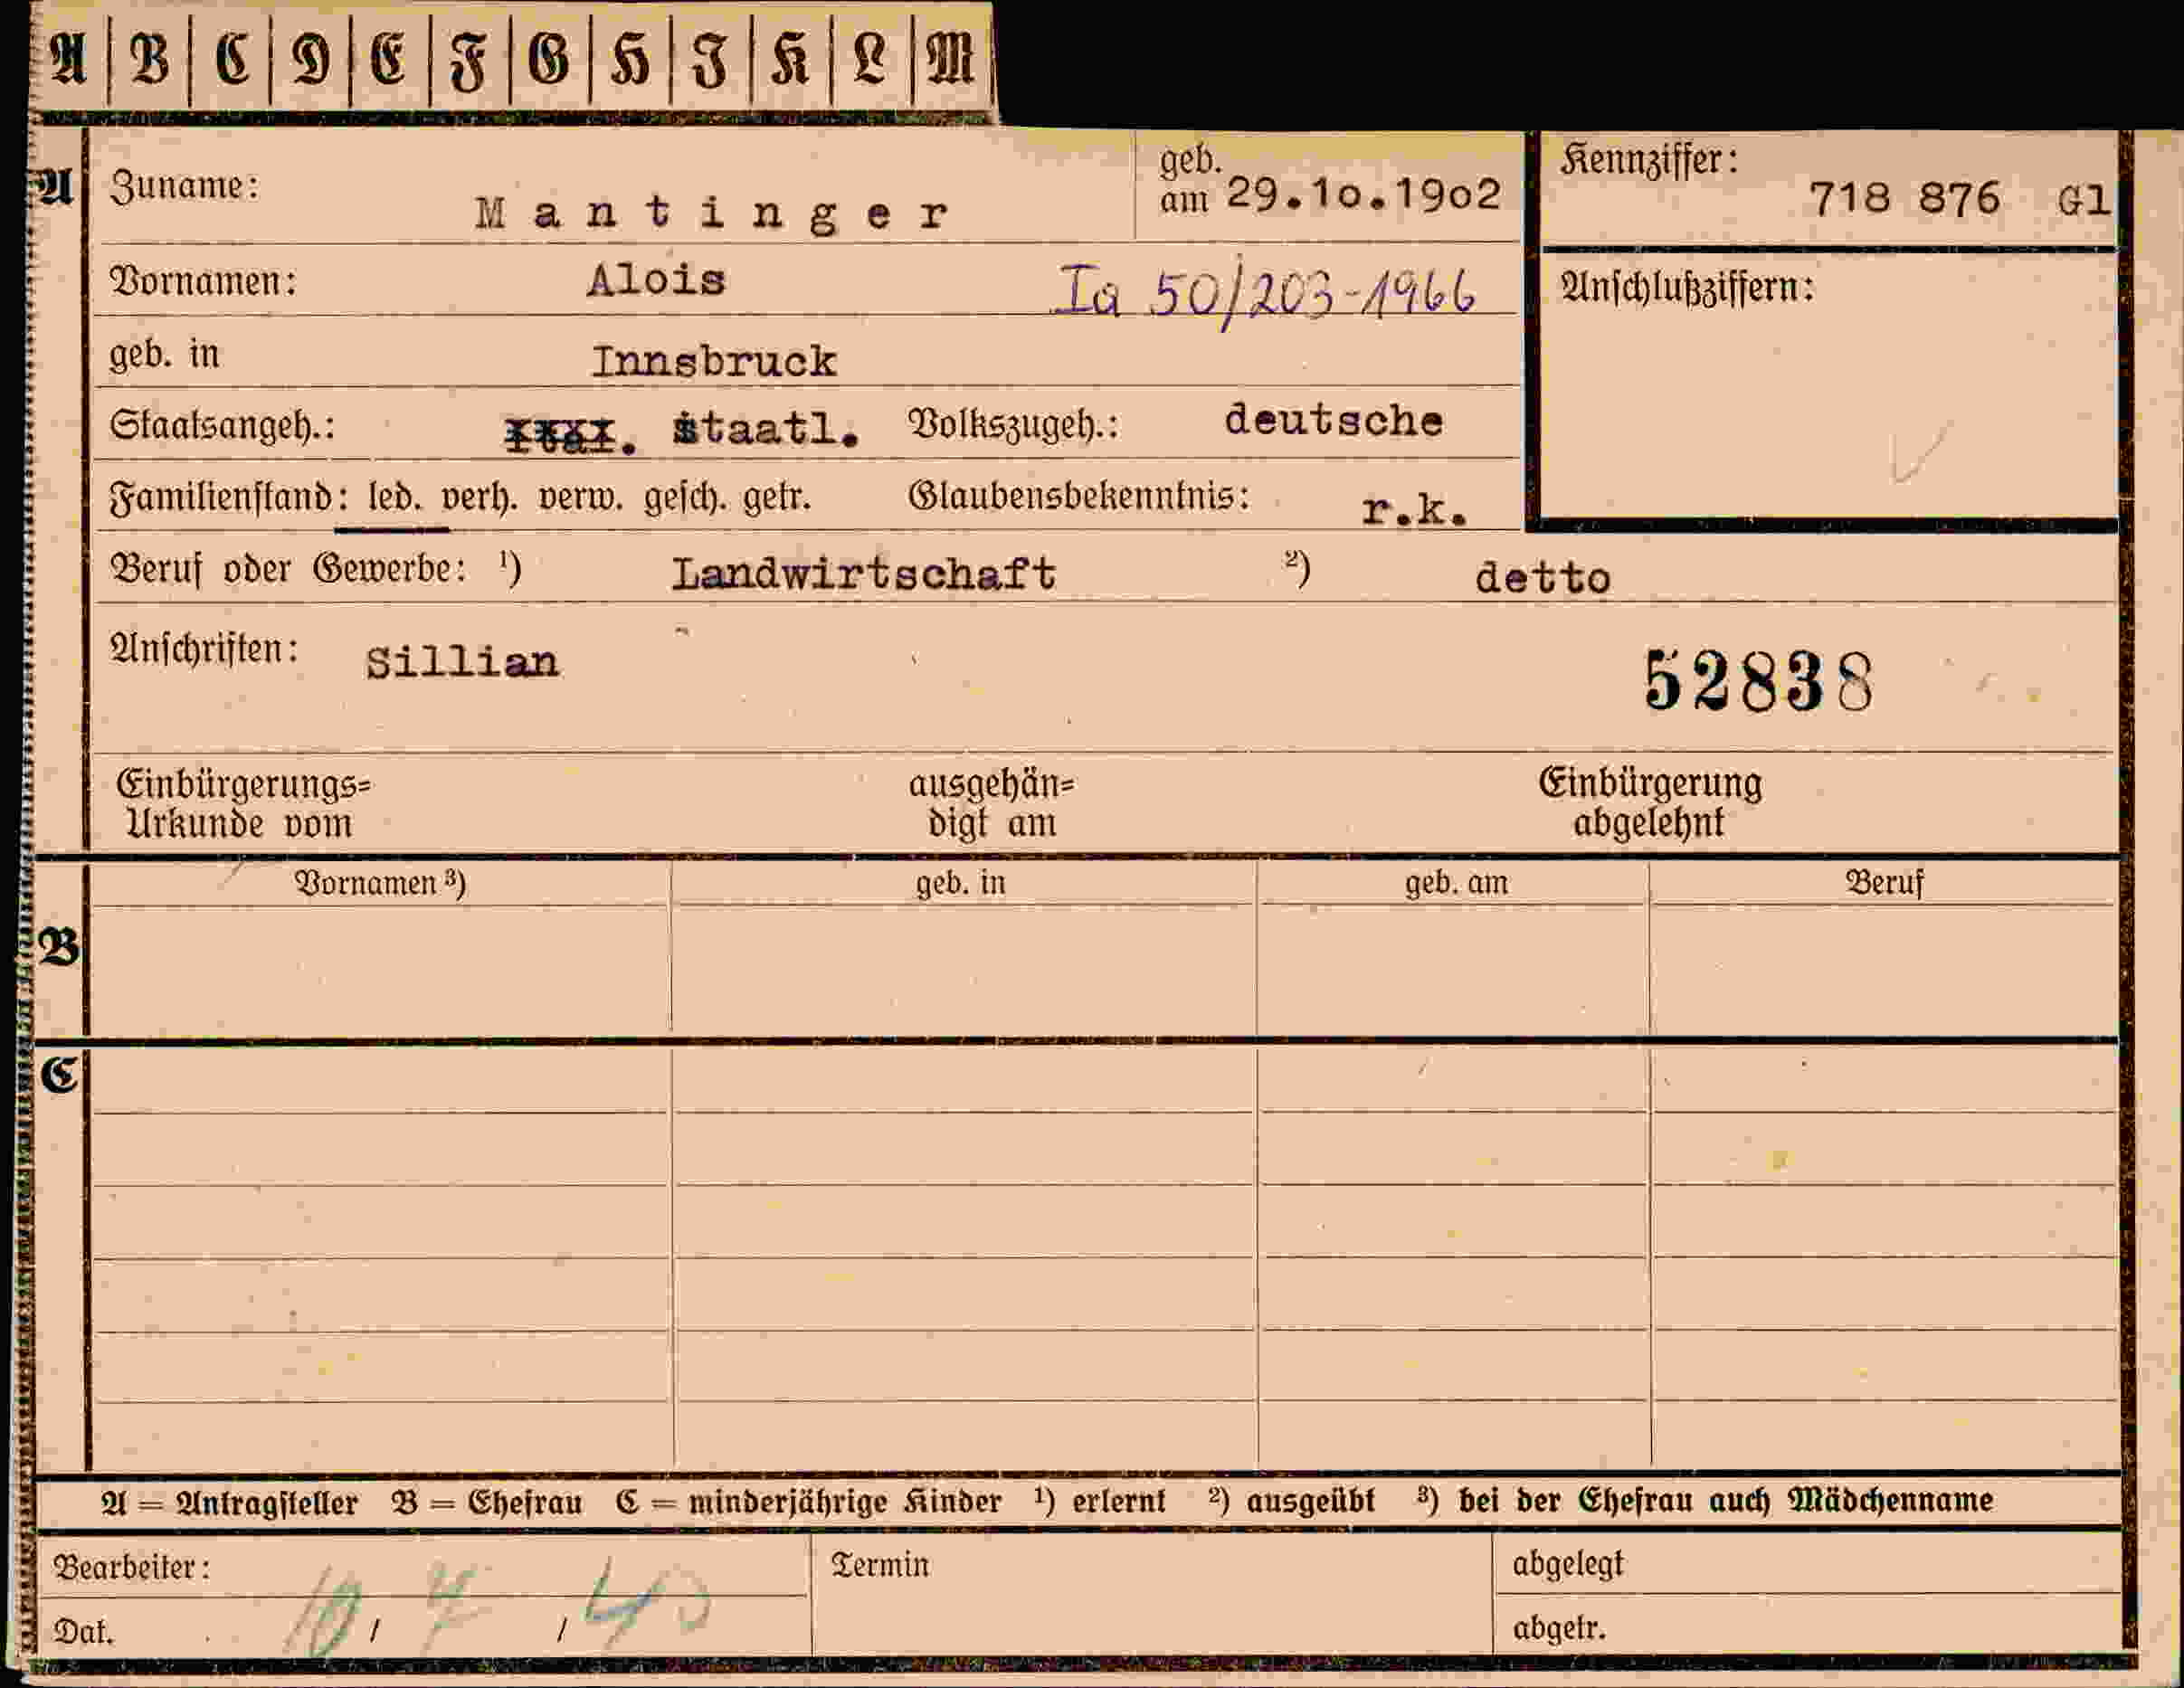 A B C D E F G H I K L M
A
Zuname: Mantinger geb. am 29.10.1902
Kennziffer: 718 876 Gl
Vornamen: Alois Ia 50/203-1966
Anschlußziffern:
geb. in Innsbruck
Staatsangeh.: staatl. Volkszugeh.: deutsche
Familienstand: led. verh. verw. gesch. getr. Glaubensbekenntnis: r.k.
Beruf oder Gewerbe: ¹) Landwirtschaft ²) detto
Anschriften: Sillian 52838
Einbürgerungs=
Urkunde vom
ausgehän=
digt am
Einbürgerung
abgelehnt
Vornamen ³) geb. in geb. am Beruf
B
C
A = Antragsteller B = Ehefrau C = minderjährige Kinder ¹) erlernt ²) ausgeübt ³) bei der Ehefrau auch Mädchenname
Bearbeiter: Termin abgelegt
Dat. / / 40 abgetr.